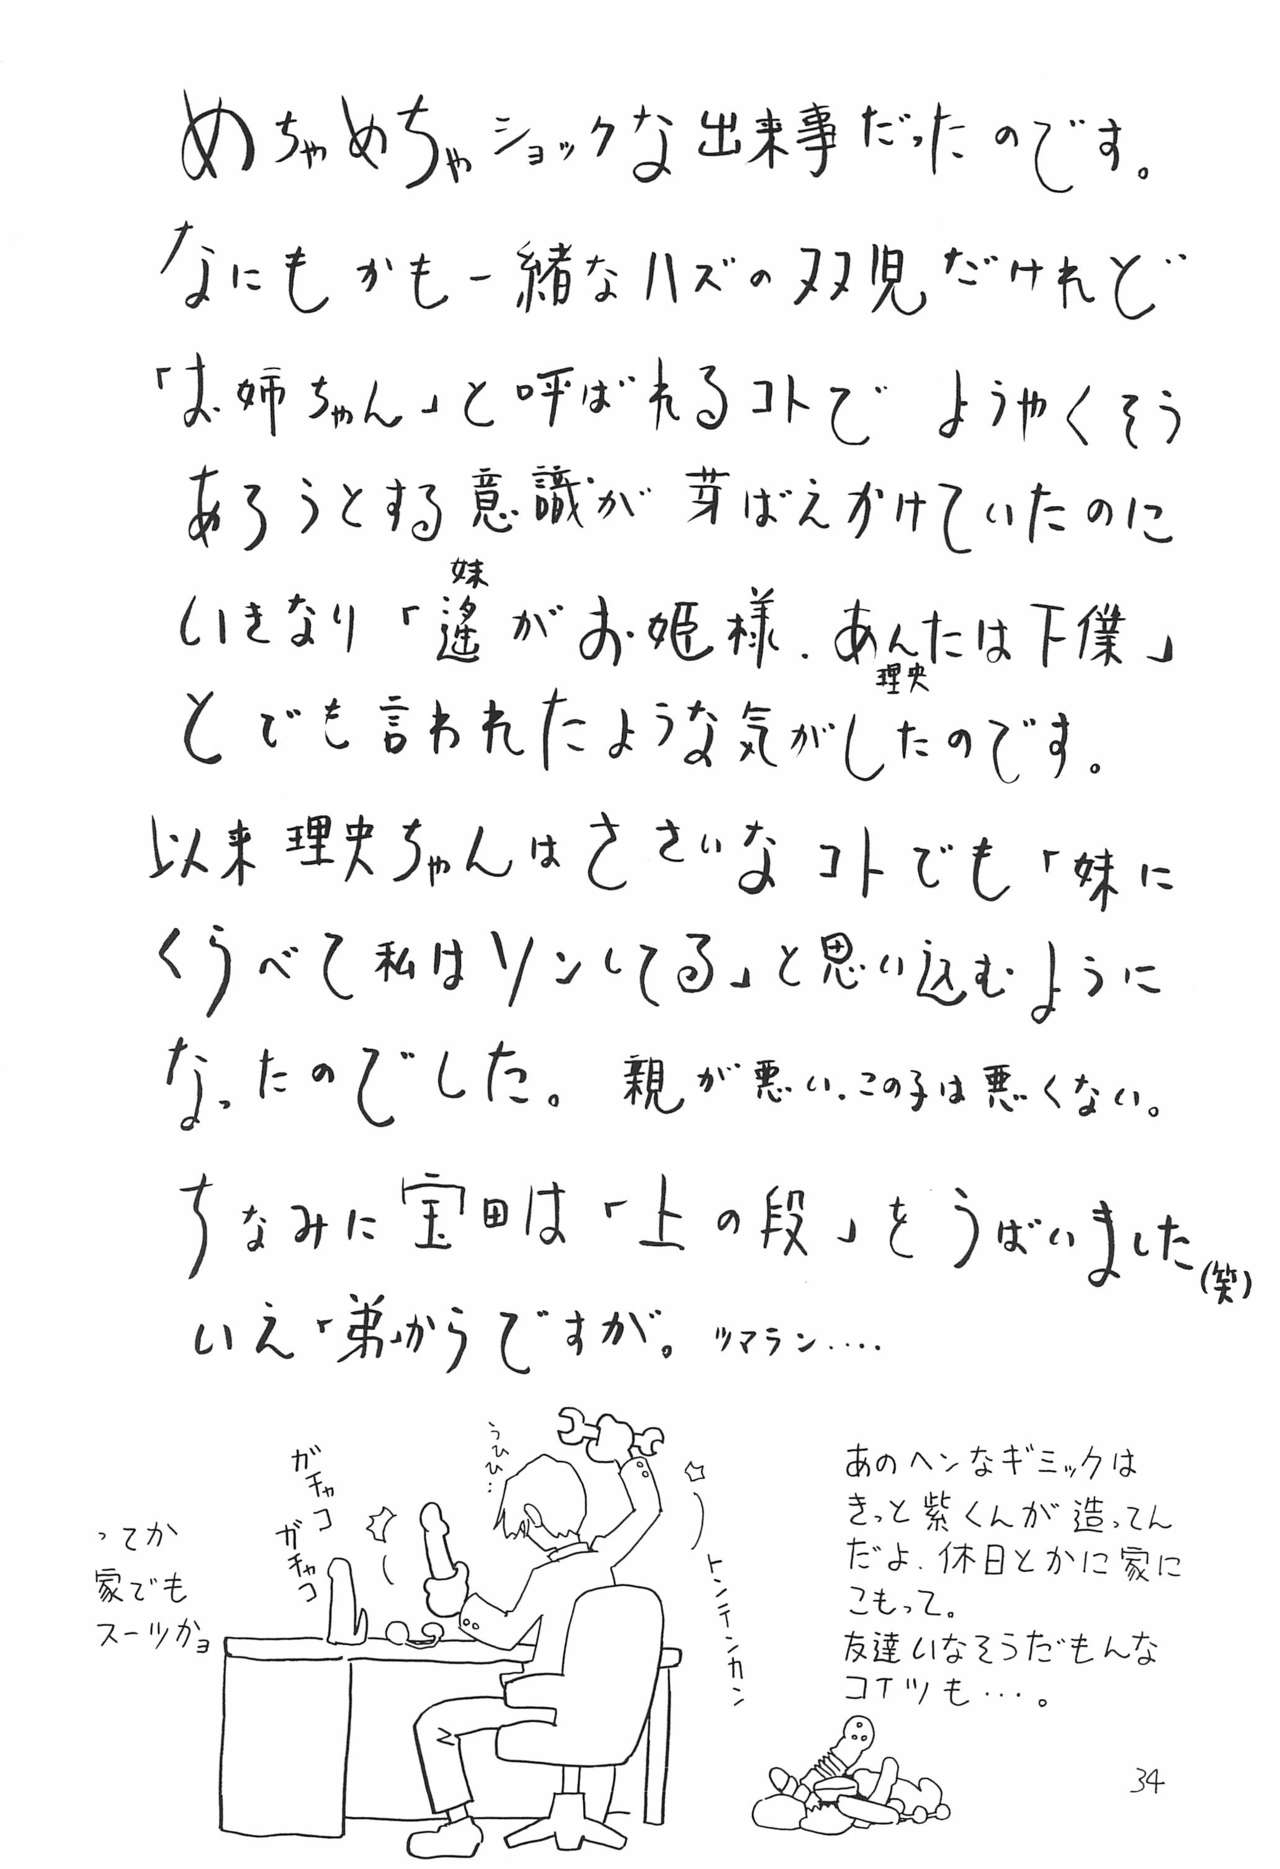 めちゃめちゃショックな出来事だったのです。
なにもかも一緒なハズの双児だけれど
「お姉ちゃん」と呼ばれるコトで ようやくそう
あろうとする意識が 芽ばえかけていたのに
妹
いきなり「遙がお姫様．あんたは下僕」
理央
とでも言われたような気がしたのです。
以来理央ちゃんはささいなコトでも「妹に
くらべて私はソンしてる」と思い込むように
なったのでした。 親が悪い．この子は悪くない。
ちなみに宝田は「上の段」をうばいました
(笑)
いえ「弟」からですが。 ツマラン‥‥
うひひ…
ガチャコ
ガチャコ
トンテンカン
ってか
家でも
スーツかョ
あのヘンなギミックは
きっと紫くんが造ってん
だよ．休日とかに家に
こもって。
友達いなそうだもんな
コイツも…。
34